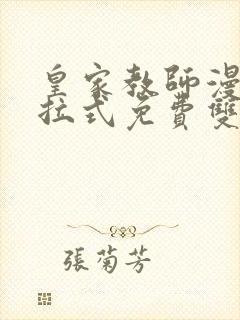 皇家教師漫
拉式免費雙
張菊芳